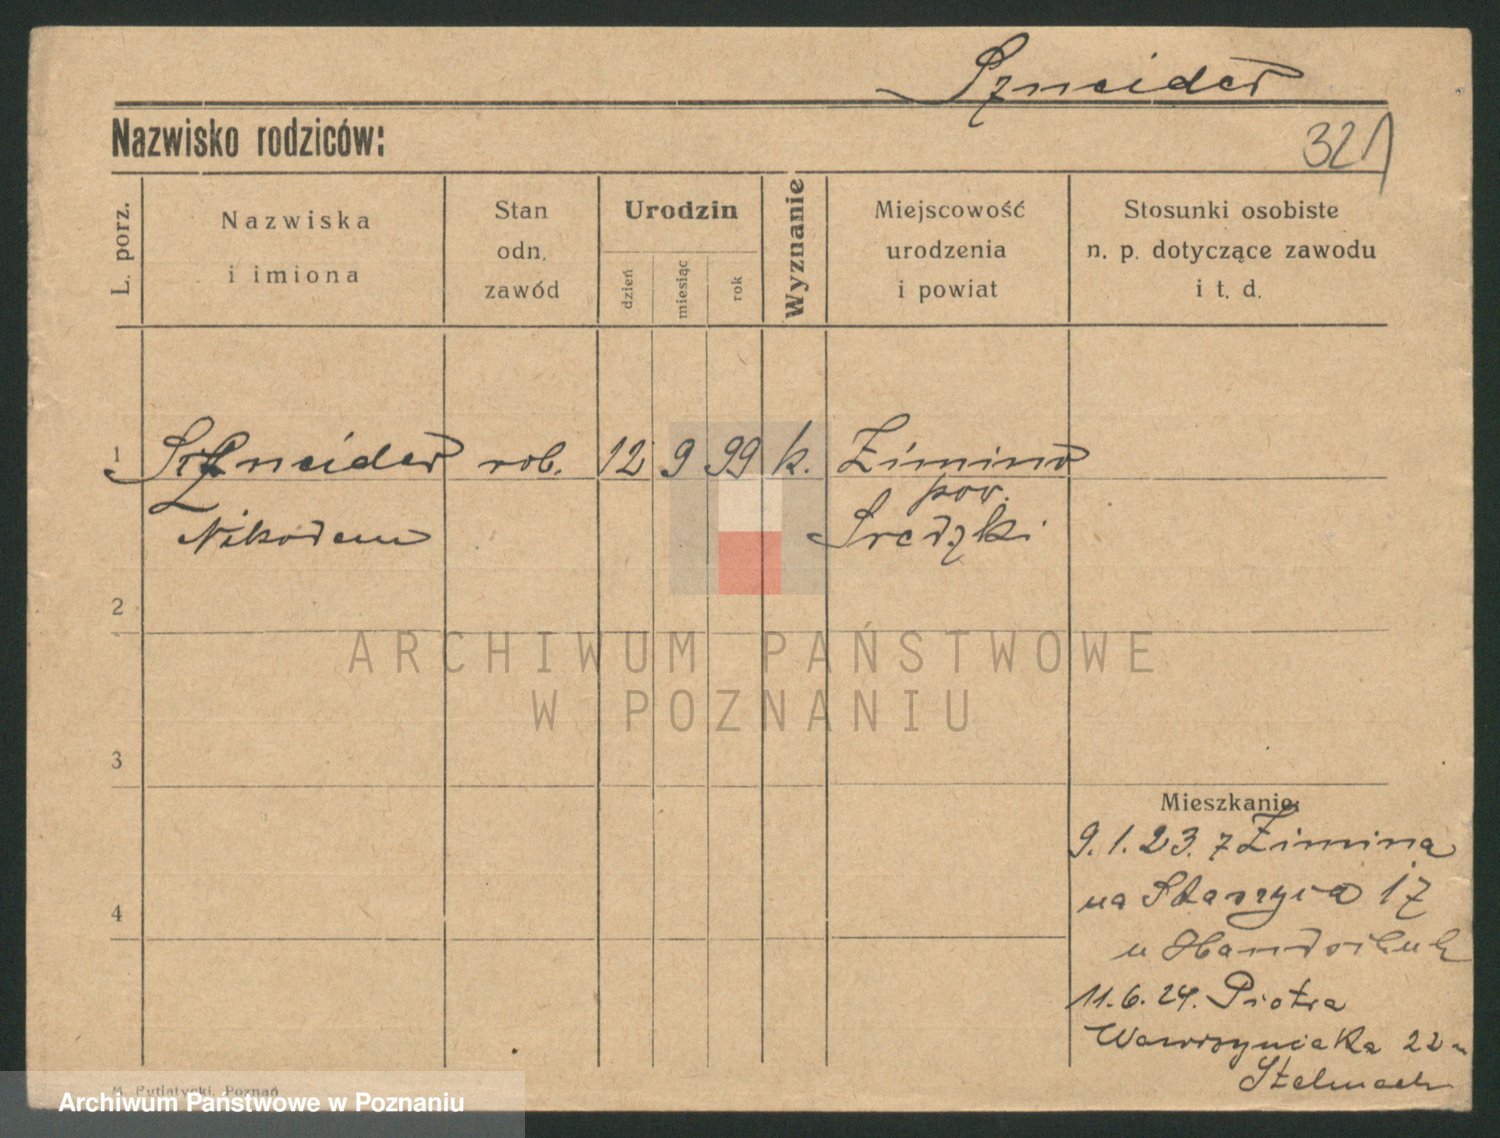 Szneider
Nazwisko rodziców:
321
L. porz.
Nazwiska
i imiona
Stan
odn.
zawód
Urodzin
dzień
miesiąc
rok
Wyznanie
Miejscowość
urodzenia
i powiat
Stosunki osobiste
n. p. dotyczące zawodu
i t. d.
1 Szneider rob. 12 9 99 k. Zimino
pow.
Nikodem Średzki
2
3
4
Mieszkanie:
9.1.23. z Zimina
na Staszyca 17
u
11.6.24. Piotra
Wawrzyniaka 22
Stelmach
M. Putiatycki, Poznań
ARCHIWUM PAŃSTWOWE
W POZNANIU
Archiwum Państwowe w Poznaniu